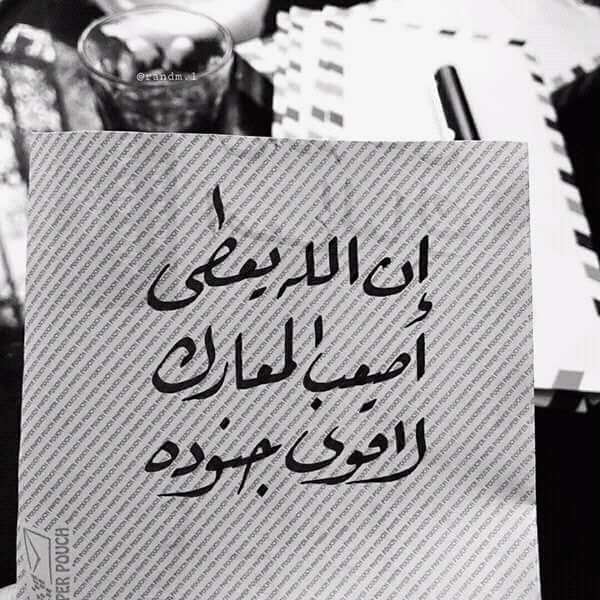 @randm.1
إن الله يعطى
أصعب المعارك
لاقوى جنوده
PAPER POUCH